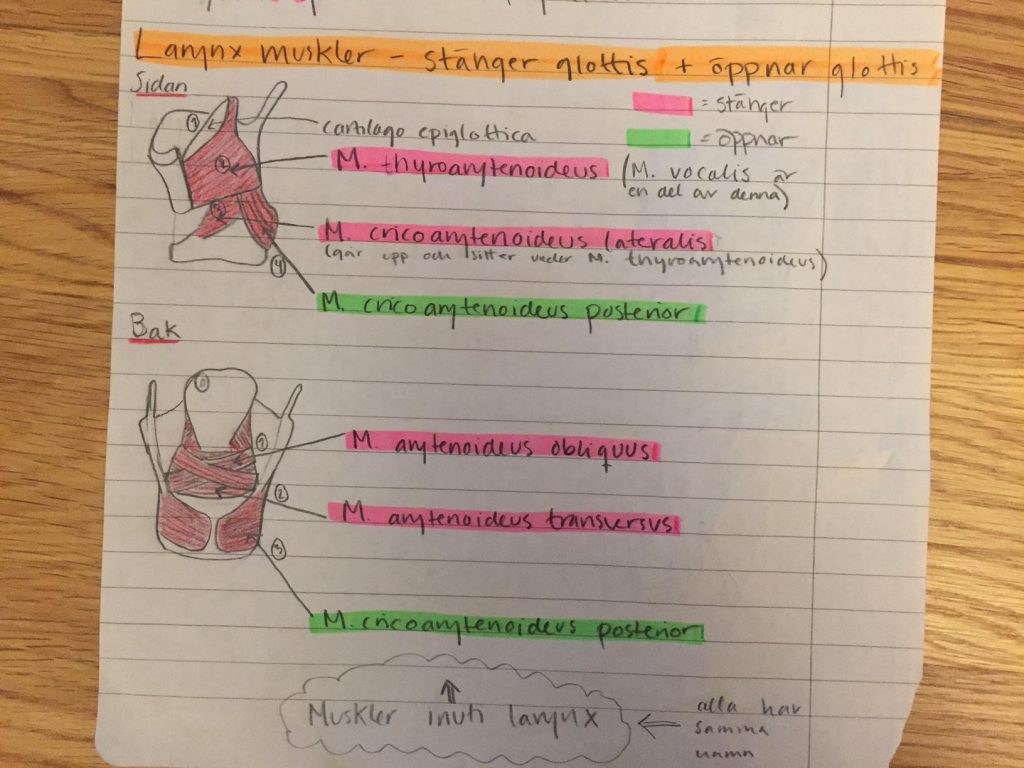 Larynx muskler - stänger glottis + öppnar glottis
Sidan
= stänger
= öppnar
1
cartilago epiglottica
2
M. thyroarytenoideus (M. vocalis är
en del av denna)
3
M. cricoarytenoideus lateralis
(går upp och sitter under M. thyroarytenoideus)
4
M. cricoarytenoideus posterior
Bak
0
1
M. arytenoideus obliquus
2
M. arytenoideus transversus
3
M. cricoarytenoideus posterior
Muskler inuti larynx
alla har
samma
namn